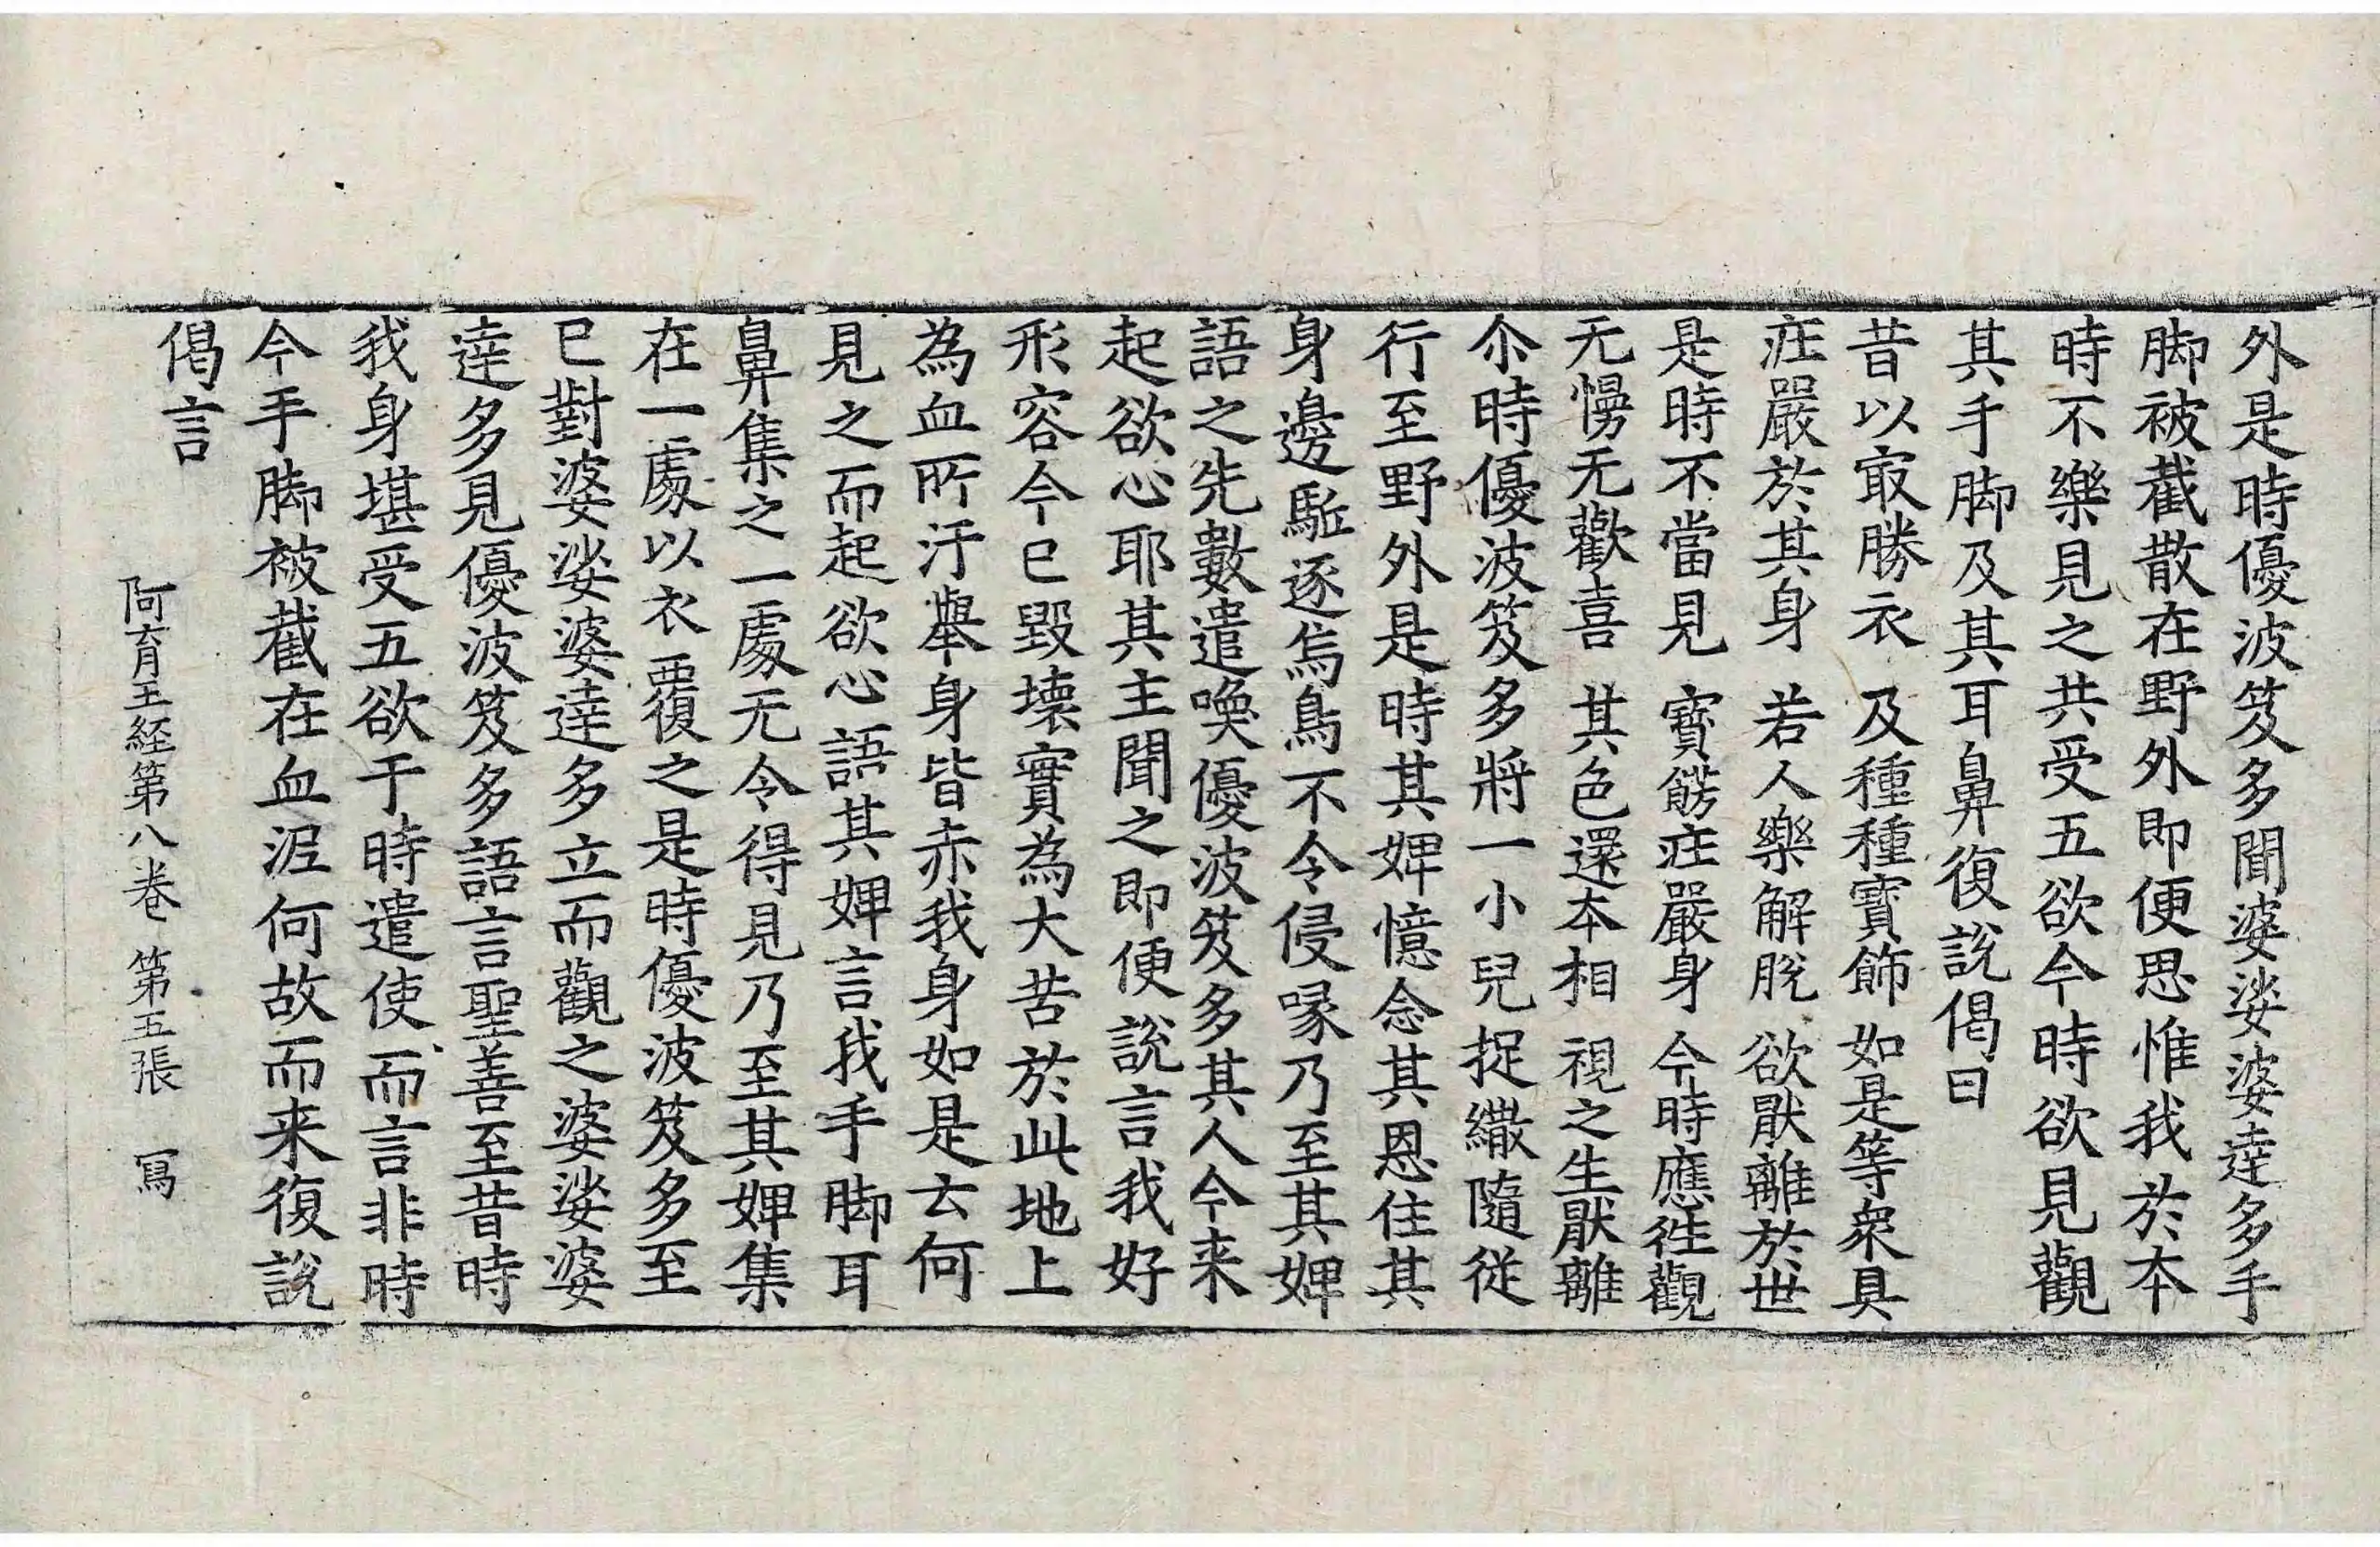 外是時優波笈多聞婆娑婆達多手
脚被截散在野外即便思惟我於本
時不樂見之共受五欲今時欲見觀
其手脚及其耳鼻復說偈曰
昔以㝡勝衣　及種種寶飾　如是等衆具
庄嚴於其身　若人樂解脫　欲猒離於世
是時不當見　寶餝庄嚴身　今時應往觀
无慢无歡喜　其色還本相　視之生猒離
尒時優波笈多將一小兒捉繖隨從
行至野外是時其婢憶念其恩住其
身邊駈逐烏鳥不令侵喙乃至其婢
語之先數遣喚優波笈多其人今来
起欲心耶其主聞之即便說言我好
形容今已毀壞實為大苦於此地上
為血所汙舉身皆赤我身如是云何
見之而起欲心語其婢言我手脚耳
鼻集之一處无令得見乃至其婢集
在一處以衣覆之是時優波笈多至
已對婆娑婆達多立而觀之婆娑婆
達多見優波笈多語言聖善至昔時
我身堪受五欲于時遣使而言非時
今手脚被截在血泥何故而来復說
偈言
阿育王経第八卷　第五張　冩